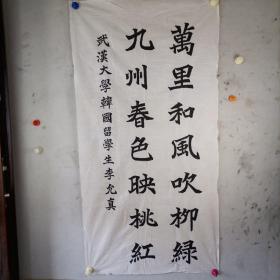 萬里和風吹柳綠
九州春色映桃紅
武漢大學韓國留學生李允真